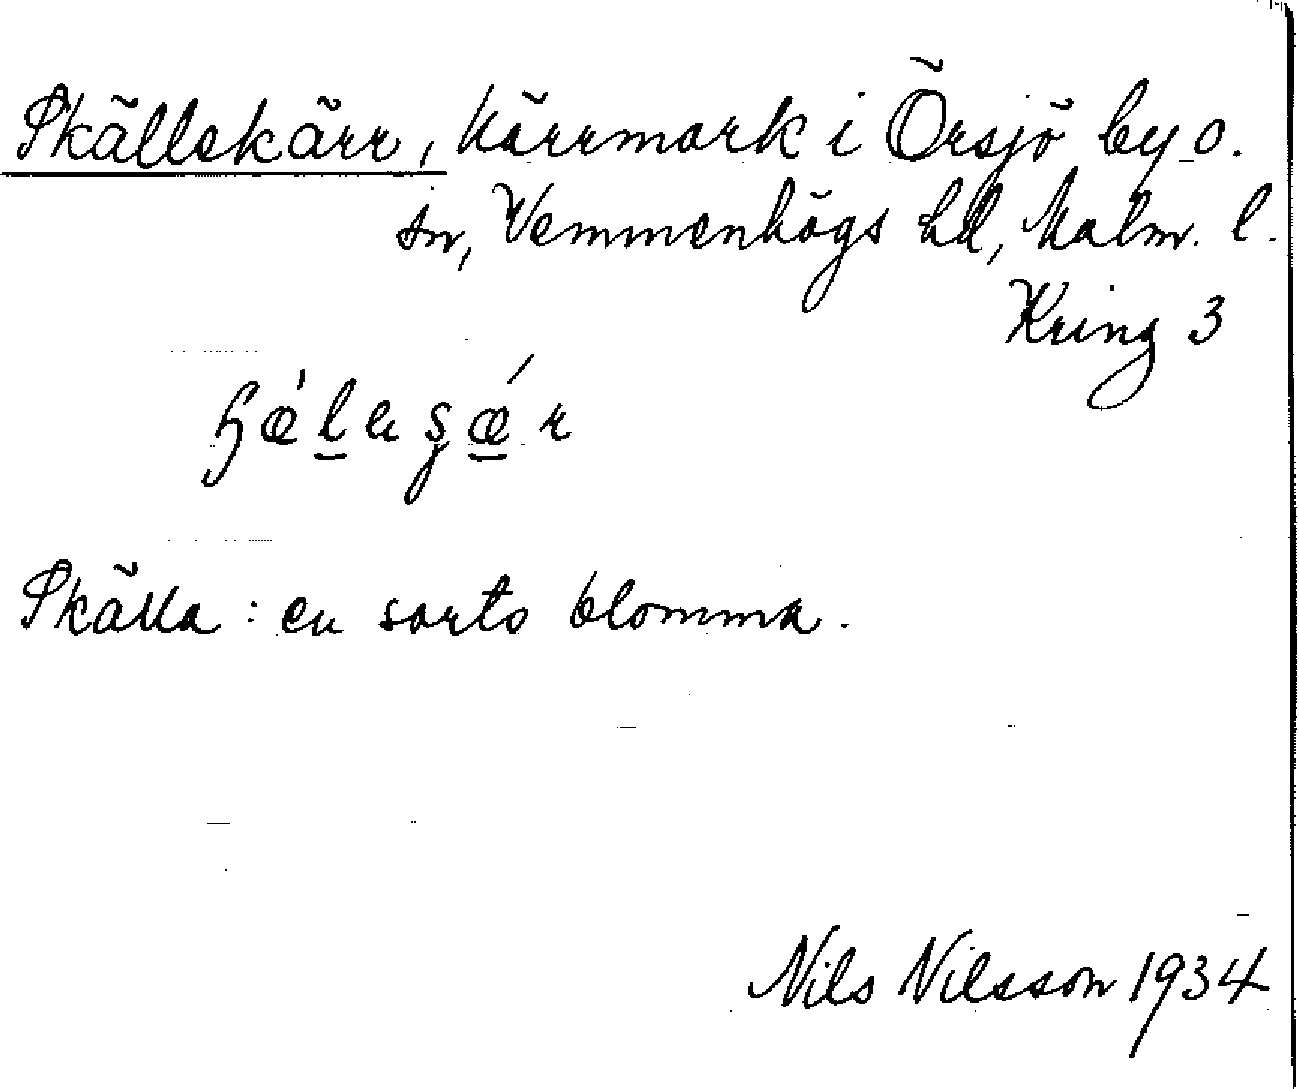 Skällekärr, kärrmark i Örsjö by o.
sn, Vemmenhögs hd, Malm. l.
Kring 3
Skälla: en sorts blomma.
Nils Nilsson 1934